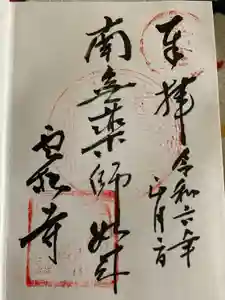 奉拝
令和六年
正月二日
南無薬師如来
雲松寺